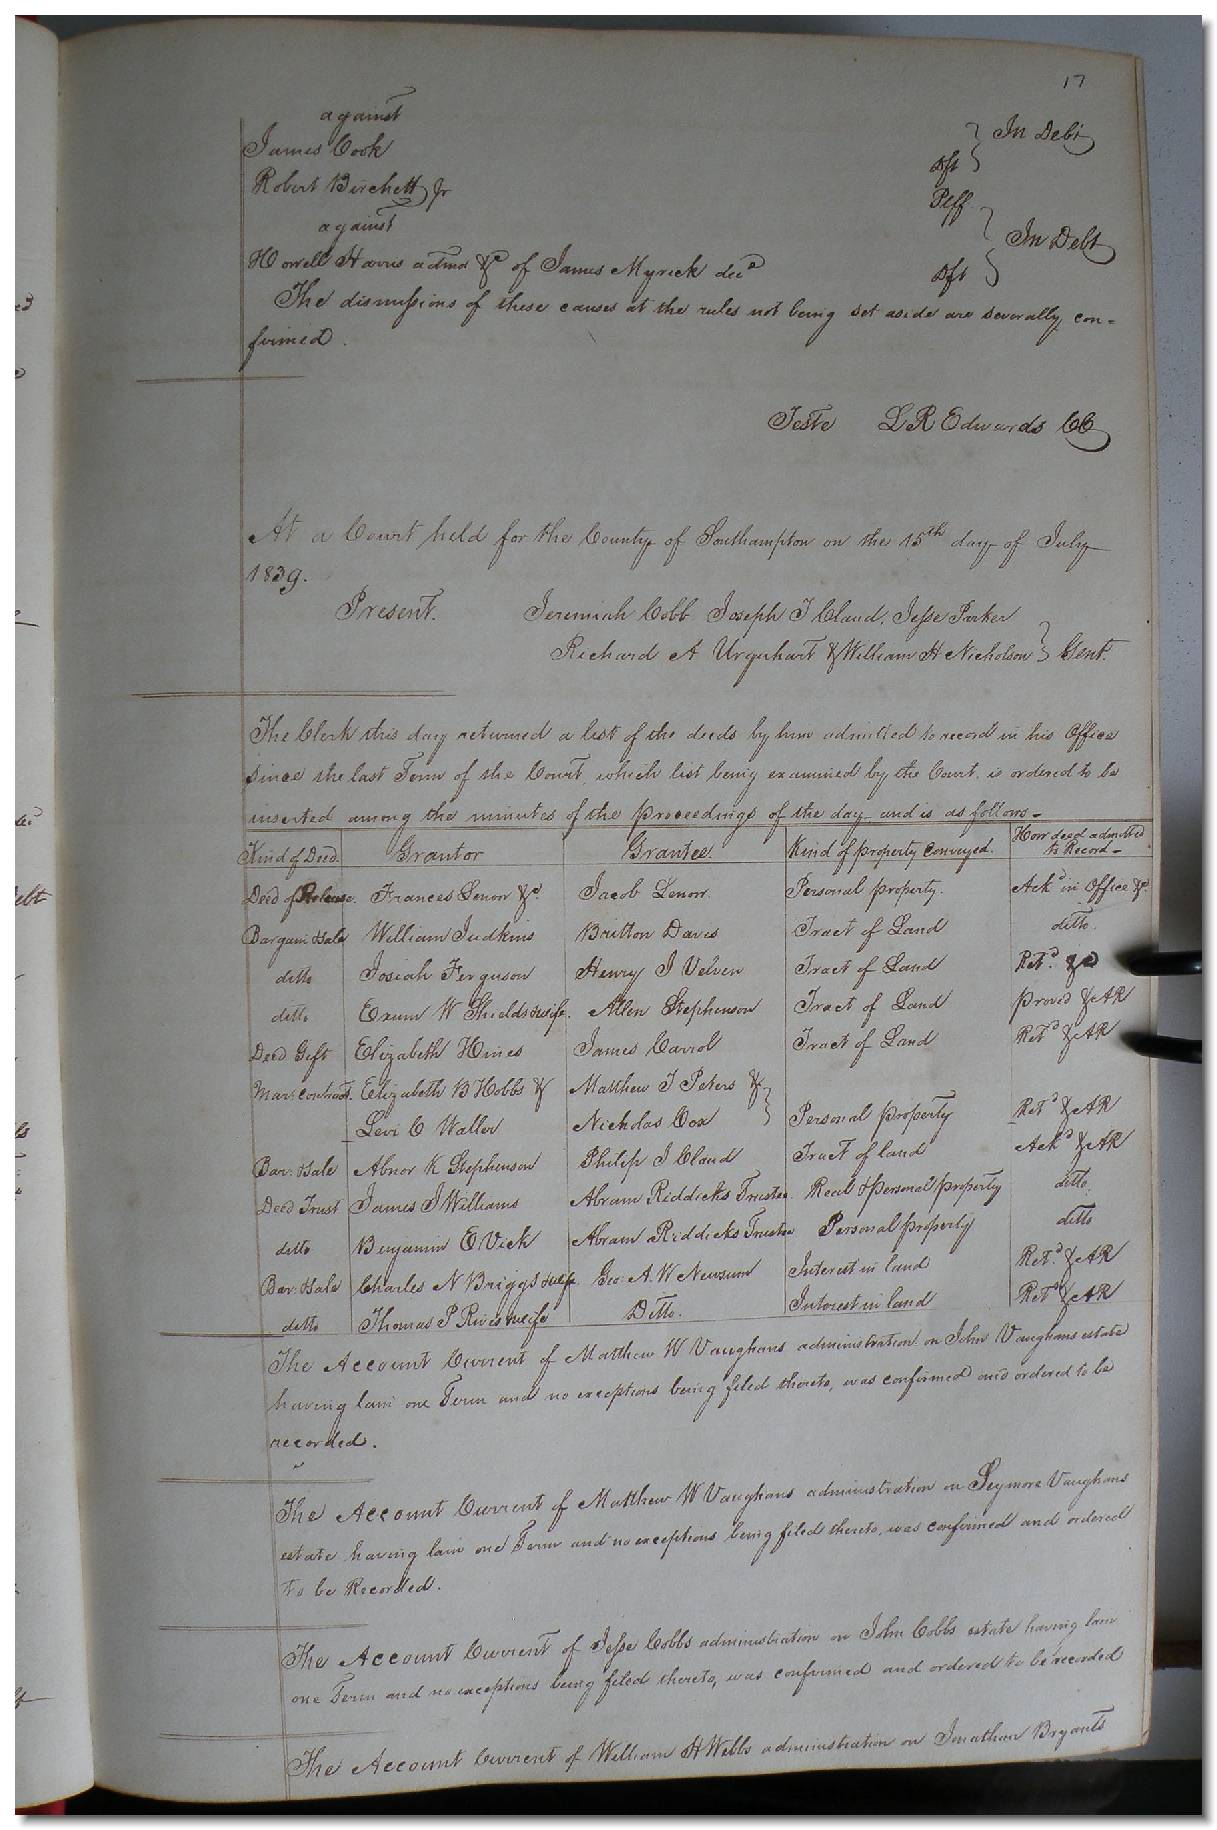 17
against
James Cook Dft } In Debt
Robert Birchett Jr Plff
against } In Debt
Howell Harris admor &c of James Myrick decd Dft
The dismissions of these causes at the rules not being set aside are severally con=
firmed.
Teste L R Edwards CC
At a Court held for the County of Southampton on the 15th day of July
1839.
Present. Jeremiah Cobb Joseph T Claud, Jesse Parker
Richard A Urquhart & William H Nicholson } Gent.
The Clerk this day returned a list of the deeds by him admitted to record in his Office
since the last Term of the Court, which list being examined by the Court, is ordered to be
inserted among the minutes of the proceedings of the day and is as follows-
Kind of Deed. Grantor Grantee. Kind of property conveyed. How deed admitted to Record-
Deed of Release. Frances Lenow &c. Jacob Lenow. Personal property. Ackd in Office &c
Bargain Sale William Judkins Britton Davis Tract of Land ditto.
ditto Josiah Ferguson Henry J Velven Tract of Land Retd. &c
ditto Exum W Shields & wife. Allen Stephenson Tract of Land proved & AR
Deed Gift Elizabeth Hines James Carrol Tract of Land Retd & AR
Mar: Contract. Elizabeth B Hobbs & Matthew T Peters & }
Levi C Waller Nicholas Cox Personal property Retd & AR
Bar: Sale Abner K Stephenson Philip J Claud Tract of land Ackd & AR
Deed Trust James J Williams Abram Riddicks Trustee. Real & personal property ditto.
ditto Benjamin E Vick Abram Riddicks Trustee Personal property ditto
Bar: Sale Charles N Briggs & wife Geo: A. W Newsum Interest in land Retd. & AR
ditto Thomas P Rives & wife Ditto. Interest in land Retd & AR
The Account Current of Matthew W Vaughans administration on John Vaughans estate
having lain one Term and no exceptions being filed thereto, was confirmed and ordered to be
recorded.
The Account Current of Matthew W Vaughans administration on Seymore Vaughans
estate having lain one Term and no exceptions being filed thereto, was confirmed and ordered
to be Recorded.
The Account Current of Jesse Cobbs administration on John Cobbs estate having lain
one Term and no exceptions being filed thereto, was confirmed and ordered to be recorded
The Account Current of William H Webbs administration on Jonathan Bryants